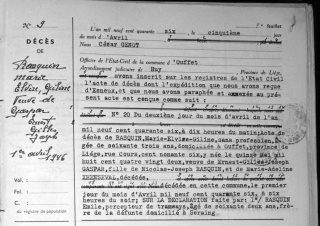 5e feuillet
N° 3
L'an mil neuf cent quarante six cinquième
du mois d'Avril
Nous César GENOT
DÉCÈS
de
Officier de l'Etat-Civil de la commune d'Ouffet
Rasquin
Arrondissement judiciaire de Huy Province de Liége,
marie
avons inscrit sur les registres de l'Etat Civil
l'acte de décès dont l'expédition que nous avons reçue
Veuve de
d'Esneux, et que nous avons paraphée et annexée au pré-
Gaspar
sent acte est conçue comme suit:
N° 20 Du deuxième jour du mois d'avril de l'an
mil neuf cent quarante six, à dix heures du matin; Acte de
décès de RASQUIN, Marie-Elvire-Giline, sans profession, â-
gée de soixante trois ans, domiciliée à Ouffet, province de
1er avril
Liége, rue Cours, cent nonante six, née le quinze mai mil
1946
huit cent quatre vingt deux, veuve de Ernest-Gilles-Joseph
GASPAR, fille de Nicolas-Joseph RASQUIN, et de Marie-Adeline
décédés, décédée en cette commune, le premier
Vol. :
jour du mois d'Avril mil neuf cent quarante six, à six
Fol. :
heures du soir; SUR LA DECLARATION faite par: 1°/ RASQUIN
Emile, percepteur de tramways, âgé de soixante deux ans, frè-
du registre de population
re de la défunte domicilié à Seraing,